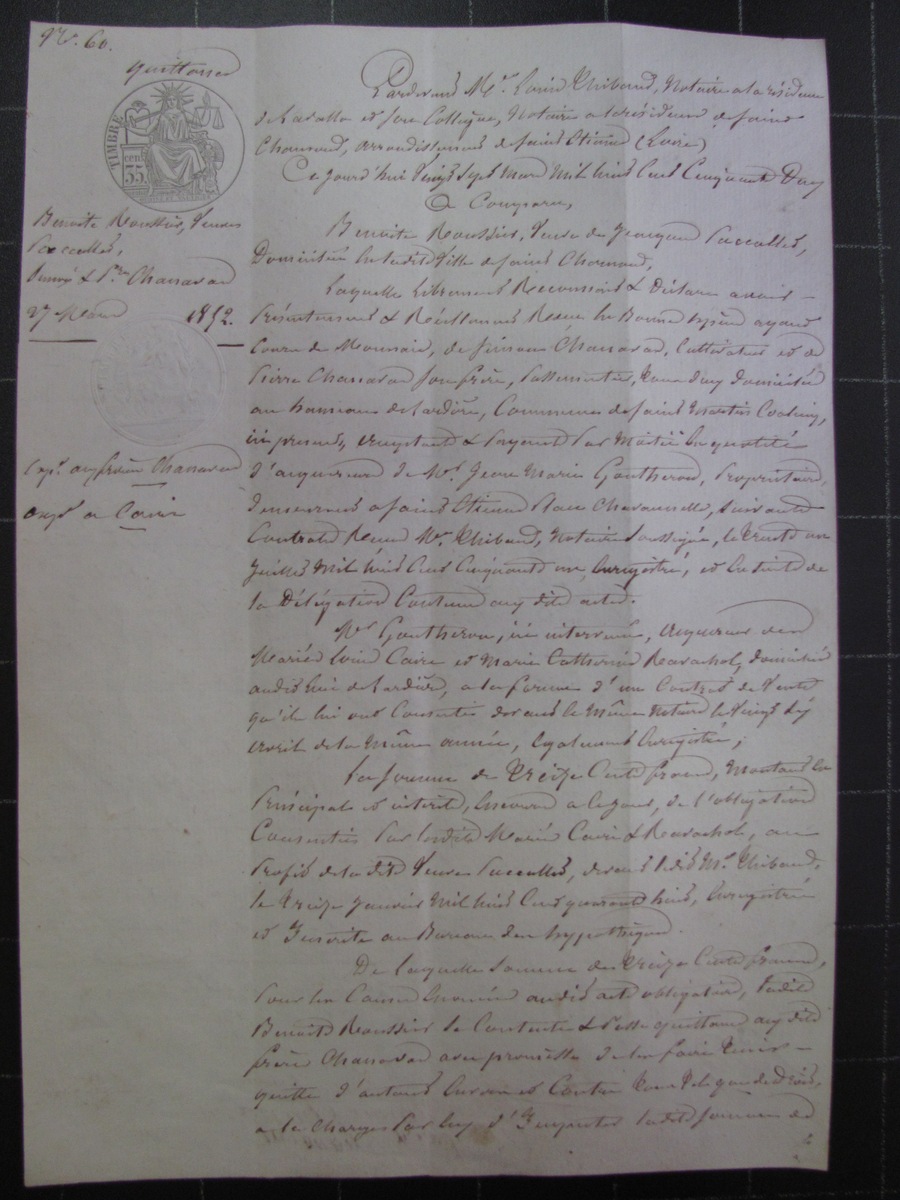 N.° 60.
quittance
TIMBRE
35 cent
Benoite Roussier, Veuve
Paccallet,
27 Mars 1852.
Exp.on aux frères Chanavat
Pardevant M.e Louis Thibaud, Notaire a la résidence
de Lavalla et son Collègue, Notaire a la résidence de Saint
Chamond, arrondissement de Saint Etienne (Loire)
Ce jourd'hui Vingt Sept Mars Mil huit Cent Cinquante Deux
a Comparu,
Benoite Roussier, Veuve de Jacques Paccallet,
Domiciliée en ladite Ville de Saint Chamond,
Laquelle librement Reconnait & Déclare avoir
Présentement & Réellement Reçu en Bonnes espèces ayant
Cours de Monnaie, de Chanavat, Cultivateur et de
Pierre Chanavat Son frère, Passementier, tous deux domiciliés
au hameau de Lardière, Commune de Saint Martin Coalieu,
ici présents, acceptant & payant Par Moitié en qualité
d'acquéreurs de M.r Jean Marie Goutheron, Propriétaire,
demeurant a Saint Etienne Place Chavanelle, Suivant
Contrat Reçu M.e Thibaud, Notaire Soussigné, le trente un
Juillet Mil huit Cent Cinquante un, Enregistré, et Ensuite de
la Délégation Contenue aux dits actes.
M.r Goutheron, ici intervenu, acquéreur des
Mariés Louis Caire et Marie Catherine Ravachol, domiciliés
audit lieu de Lardière, a la forme d'un Contrat de Vente
qu'ils lui ont Consentie devant le Même Notaire le Vingt Six
avril de la Même année, également Enregistré;
La Somme de treize Cents francs, Montant en
Principal et intérêt, encouru a ce jour, de l'obligation
Consentie Par lesdits Mariés Caire & Ravachol, au
Profit de la dite Veuve Paccallet, devant ledit M.e Thibaud,
le treize Janvier Mil huit Cent quarante huit, Enregistrée
et Inscrite au Bureau des hypothèques.
De laquelle Somme de treize Cents francs,
Pour les Causes énoncées audit acte obligatoire, ladite
Benoite Roussier Se Contente & Passe quittance aux dits
frères Chanavat avec promesse de les faire tenir
quitte d'autant Envers et Contre tous qu de droit,
a la Charge Par eux d'Imputer ladite Somme de